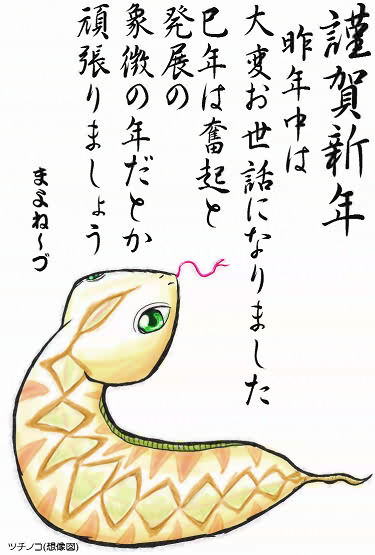 謹賀新年
昨年中は
大変お世話になりました
巳年は奮起と
発展の
象徴の年だとか
頑張りましょう
まよね～づ
ツチノコ(想像図)